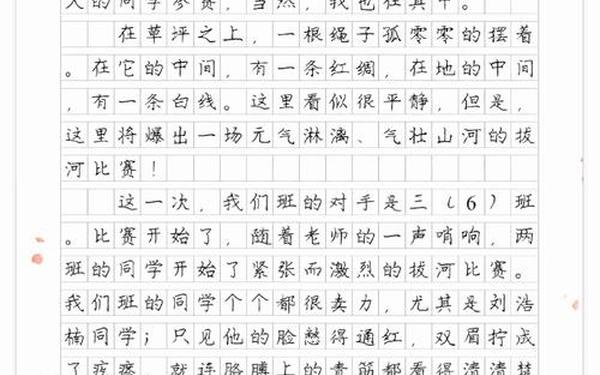 大的同学参赛，当然，我也在其中。
在草坪之上，一根绳子孤零零的摆着
。在它的中间，有一条红绸，在地的中间
，有一条白线。这里看似很平静，但是，
这里将爆出一场元气淋漓、气壮山河的拔
河比赛！
这一次，我们班的对手是三（6）班
。比赛开始了，随着老师的一声哨响，两
班的同学开始了紧张而激烈的拔河比赛。
我们班的同学个个都很卖力，尤其是刘浩
楠同学；只见他的脸憋得通红，双眉拧成
了疙瘩，就连胳膊上的青筋都看得清清楚